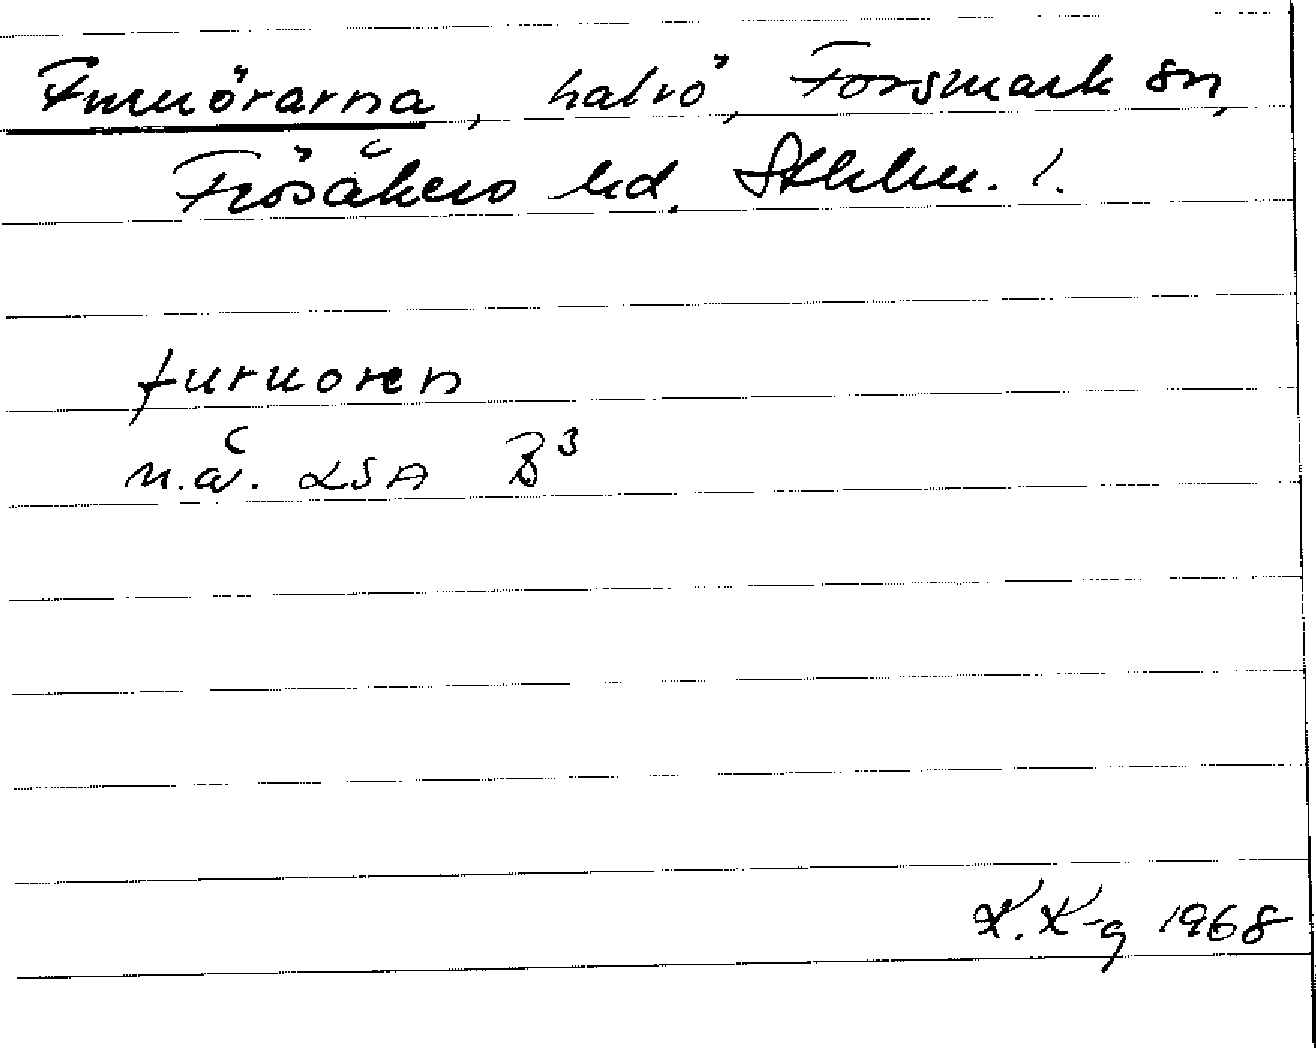 Furuörarna, halvö, Forsmark sn,
Frösåkers hd, Sthlm. l.
furuoren
n.å. LSA B³
K. K-g 1968